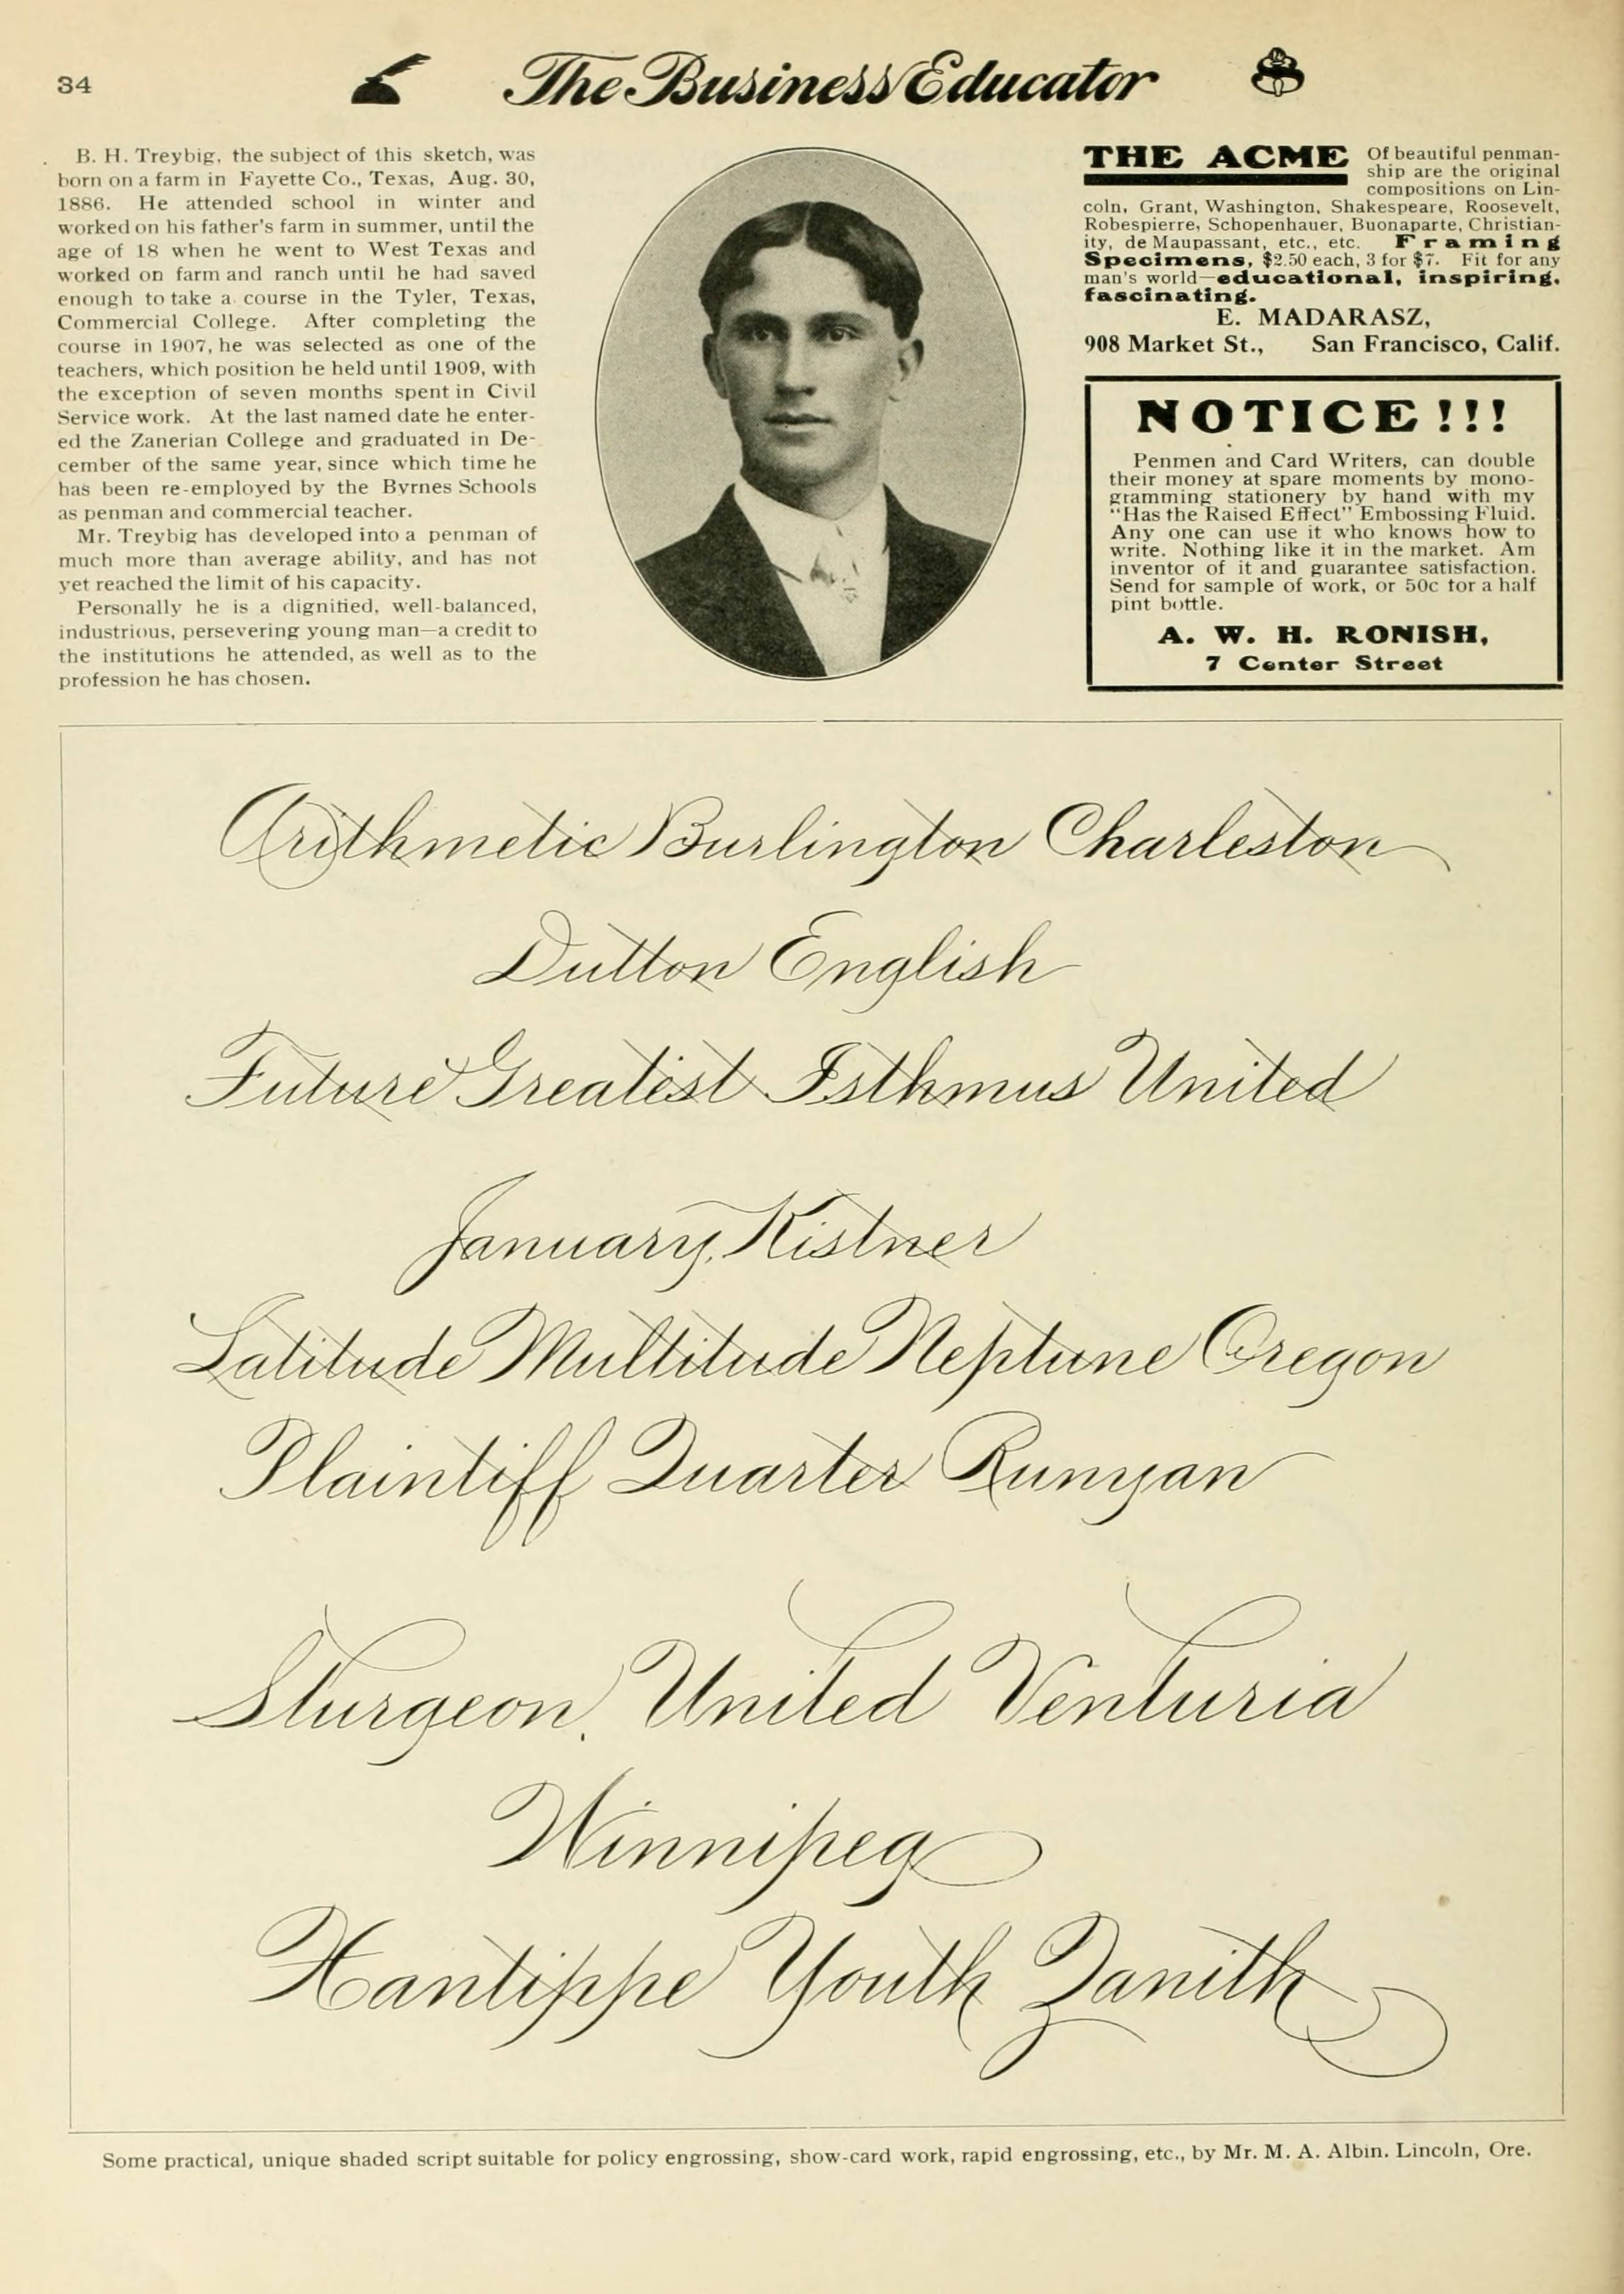 34
The Business Educator
B. H. Treybig, the subject of this sketch, was
born on a farm in Fayette Co., Texas, Aug. 30,
1886. He attended school in winter and
worked on his father's farm in summer, until the
age of 18 when he went to West Texas and
worked on farm and ranch until he had saved
enough to take a course in the Tyler, Texas,
Commercial College. After completing the
course in 1907, he was selected as one of the
teachers, which position he held until 1909, with
the exception of seven months spent in Civil
Service work. At the last named date he enter-
ed the Zanerian College and graduated in De-
cember of the same year, since which time he
has been re-employed by the Byrnes Schools
as penman and commercial teacher.
Mr. Treybig has developed into a penman of
much more than average ability, and has not
yet reached the limit of his capacity.
Personally he is a dignified, well-balanced,
industrious, persevering young man—a credit to
the institutions he attended, as well as to the
profession he has chosen.
THE ACME Of beautiful penman-
ship are the original
compositions on Lin-
coln, Grant, Washington, Shakespeare, Roosevelt,
Robespierre, Schopenhauer, Buonaparte, Christian-
ity, de Maupassant, etc., etc. Framing
Specimens, $2.50 each, 3 for $7. Fit for any
man's world—educational, inspiring,
fascinating.
E. MADARASZ,
908 Market St., San Francisco, Calif.
NOTICE!!!
Penmen and Card Writers, can double
their money at spare moments by mono-
gramming stationery by hand with my
"Has the Raised Effect" Embossing Fluid.
Any one can use it who knows how to
write. Nothing like it in the market. Am
inventor of it and guarantee satisfaction.
Send for sample of work, or 50c for a half
pint bottle.
A. W. H. RONISH,
7 Center Street
Arithmetic Burlington Charleston
Dutton English
Future Greatest Isthmus United
January, Kistner
Latitude Multitude Neptune Oregon
Plaintiff Quarter Runyan
Sturgeon, United Venturia
Winnipeg
Xantippe Youth Zanith
Some practical, unique shaded script suitable for policy engrossing, show-card work, rapid engrossing, etc., by Mr. M. A. Albin. Lincoln, Ore.